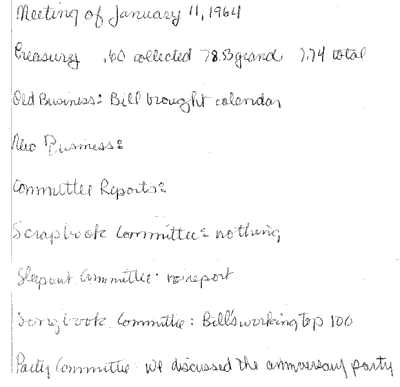 Meeting of January 11, 1964
Treasury .60 collected 78.53 grand 7.74 total
Old Business: Bill brought calendar
New Business:
Committee Reports:
Scrapbook Committee: nothing
Sleepout Committee: no report
Songbook Committee: Bill's working top 100
Party Committee: We discussed the anniversary party